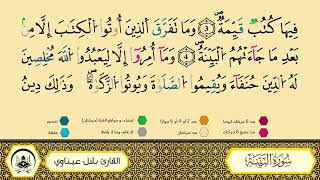 فِيهَا كُتُبٌ قَيِّمَةٌ ۝٣ وَمَا تَفَرَّقَ ٱلَّذِينَ أُوتُوا۟ ٱلْكِتَٰبَ إِلَّا مِنۢ
بَعْدِ مَا جَآءَتْهُمُ ٱلْبَيِّنَةُ ۝٤ وَمَآ أُمِرُوٓا۟ إِلَّا لِيَعْبُدُوا۟ ٱللَّهَ مُخْلِصِينَ
لَهُ ٱلدِّينَ حُنَفَآءَ وَيُقِيمُوا۟ ٱلصَّلَوٰةَ وَيُؤْتُوا۟ ٱلزَّكَوٰةَ ۚ وَذَٰلِكَ دِينُ
القارئ بلال عيناوي
سُورَةُ البَيِّنَةِ